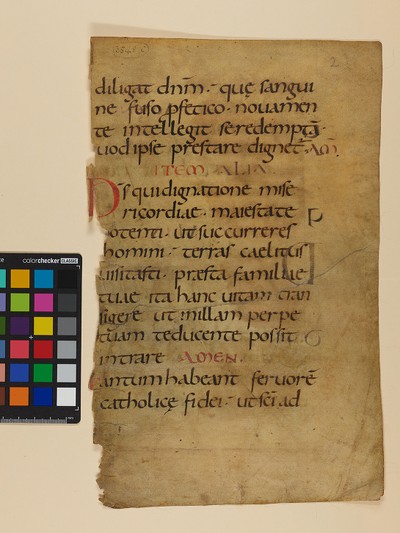 2
diligat dnm̄. quę sangui
ne fuso pfetico. nouamen
te intellegit seredemptā.
uod ipse prestare dignet̄. AM̄
ITEM ALIA
Dś qui dignatione mise
ricordiae. maiestate
potenti. utsuccurreres
homini. terras caelitus
uisitasti. praesta familiae
tuae ita hanc uitam tran
sigere ut in illam perpe
tuam te ducente possit
intrare AMEN.
antum habeant feruorē
catholicę fidei. ut sc̄i ad